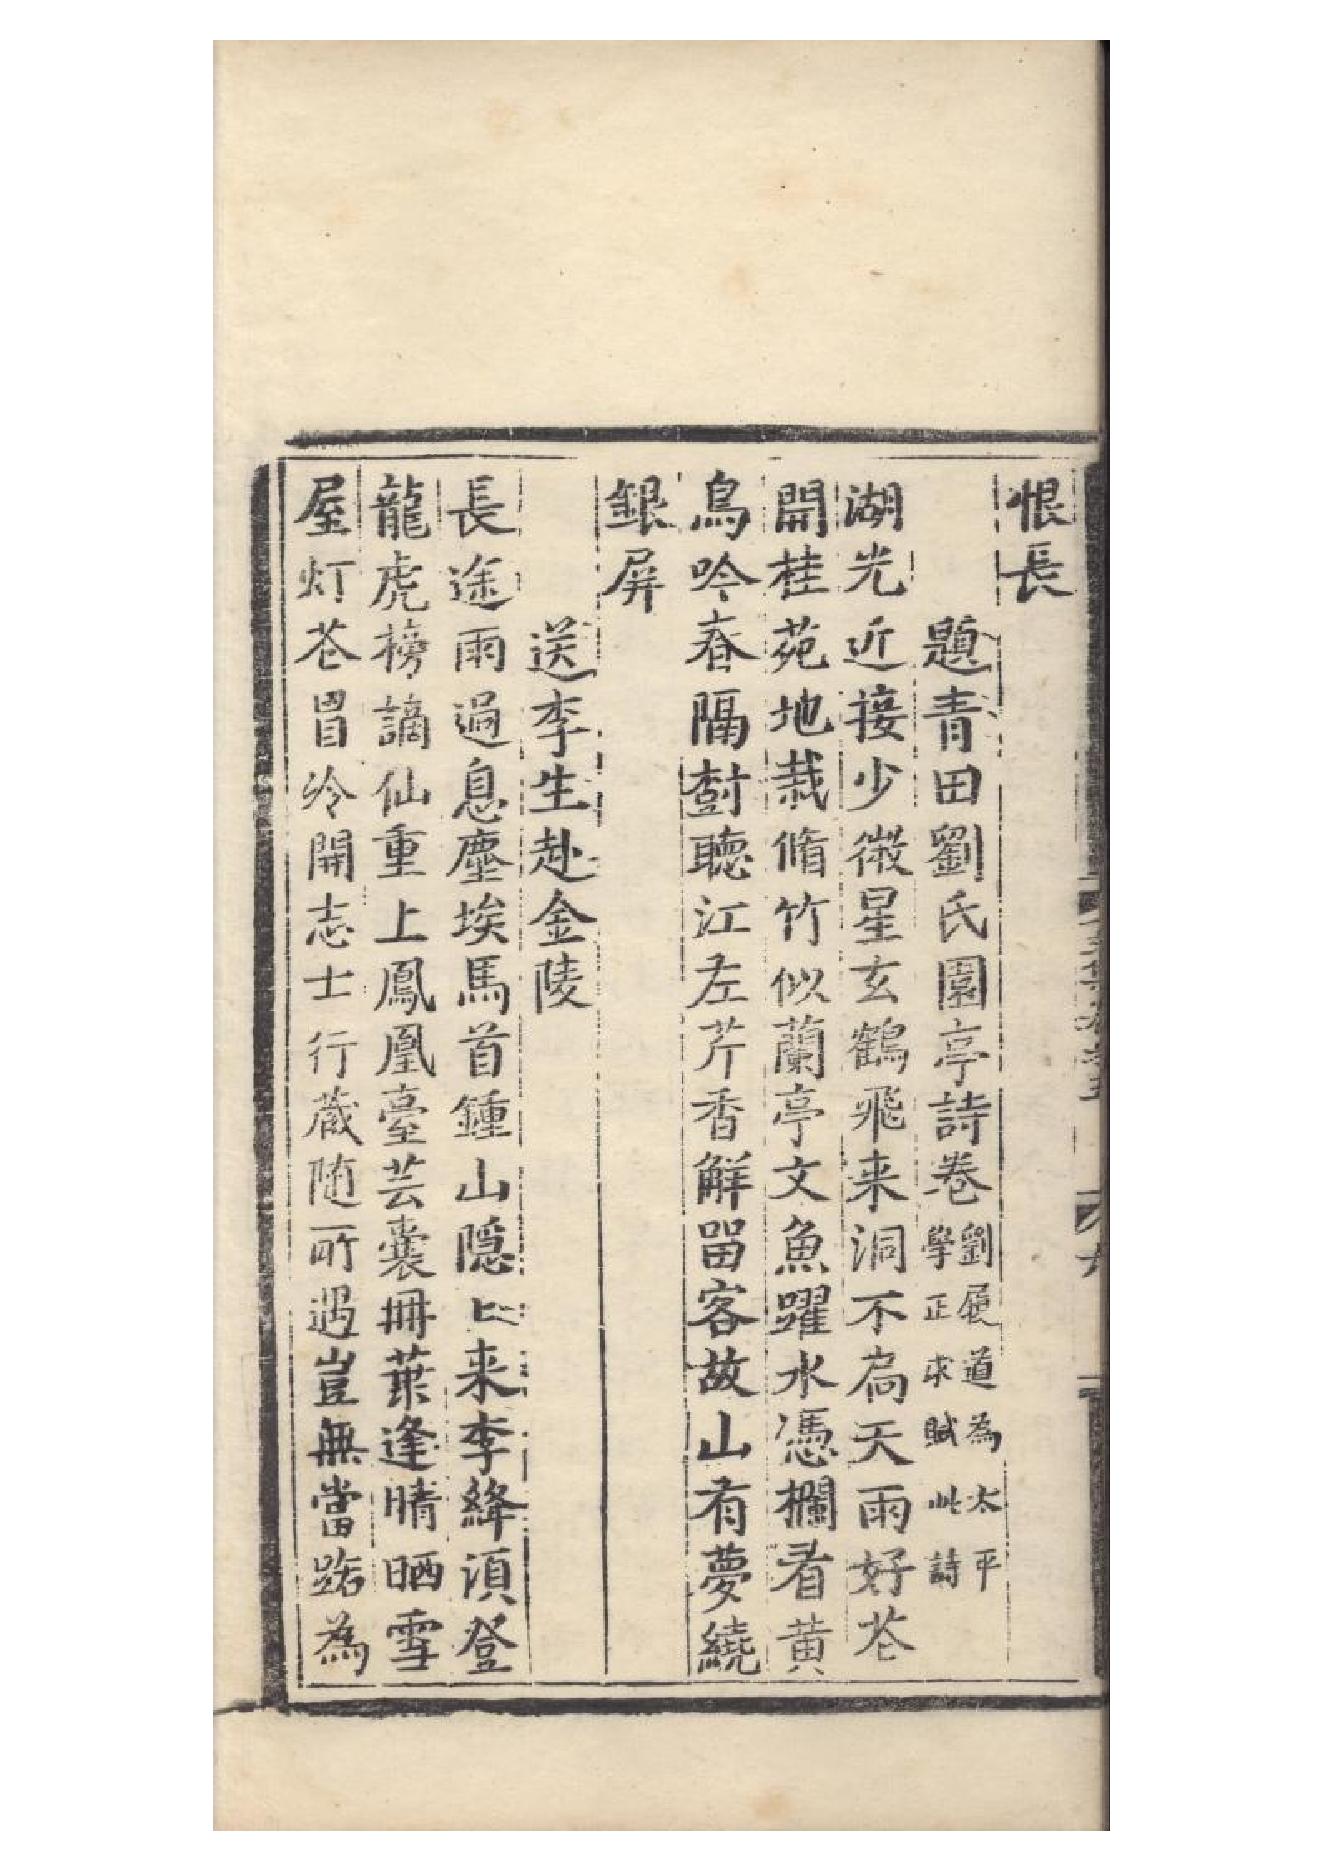 恨長
題青田劉氏園亭詩卷劉履道為太平學正求賦此詩
湖光近接少微星玄鶴飛来洞不扃天雨好苍
開桂苑地栽脩竹似蘭亭文魚躍水憑欄看黄
鳥吟春隔樹聴江左芹香解留客故山有夢繞
銀屏
送李生赴金陵
長途雨過息塵埃馬首鍾山隠匕来李絳湏登
龍虎榜謫仙重上鳳凰臺芸囊冊葉逢晴晒雪
屋灯苍冐冷開志士行蔵随所遇豈無當路為